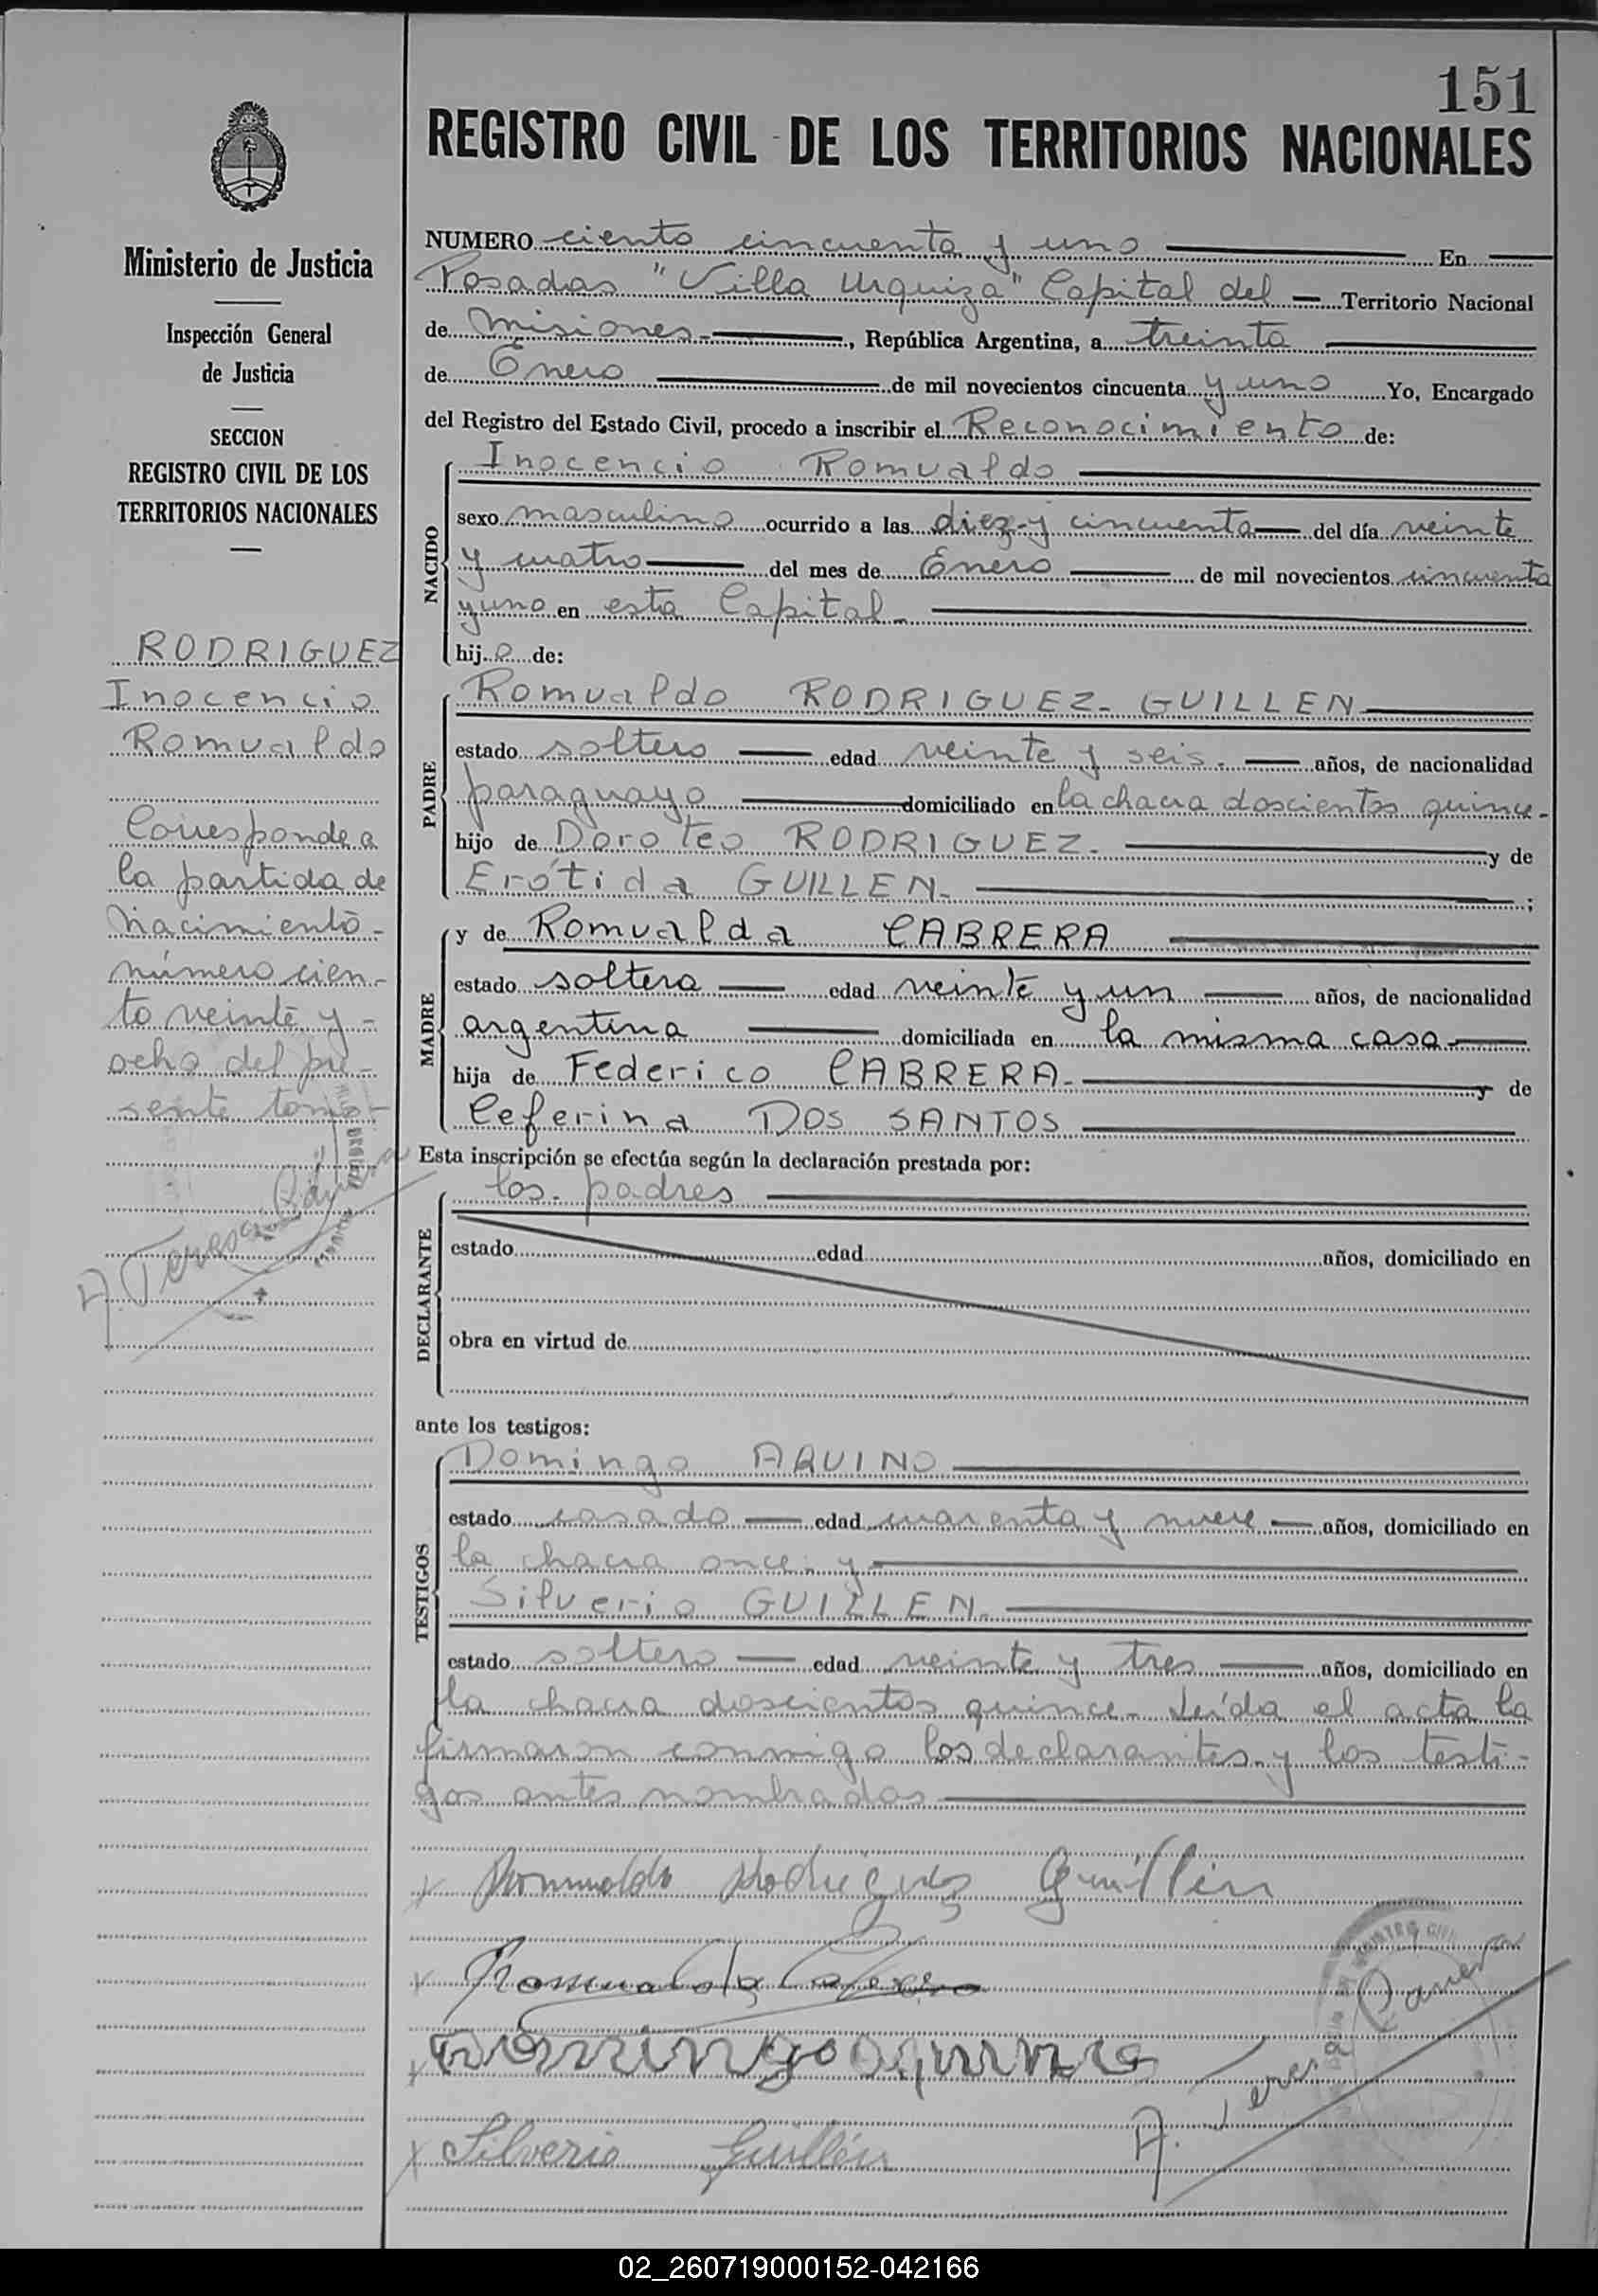 151
REGISTRO CIVIL DE LOS TERRITORIOS NACIONALES
Ministerio de Justicia
Inspección General
de Justicia
SECCION
REGISTRO CIVIL DE LOS
TERRITORIOS NACIONALES
RODRIGUEZ
Inocencio
Romualdo
Corresponde a
la partida de
Nacimiento-
número cien-
to veinte y-
ocho del pre-
sente tomo-
A. Teresa
NUMERO ciento cincuenta y uno En
Posadas "Villa Urquiza" Capital del Territorio Nacional
de Misiones.-, República Argentina, a treinta
de Enero de mil novecientos cincuenta y uno Yo, Encargado
del Registro del Estado Civil, procedo a inscribir el Reconocimiento de:
NACIDO
Inocencio Romualdo
sexo masculino ocurrido a las diez y cincuenta del día veinte
y cuatro del mes de Enero de mil novecientos cincuenta
y uno en esta Capital.-
hijo de:
PADRE
Romualdo RODRIGUEZ-GUILLEN
estado soltero edad veinte y seis.- años, de nacionalidad
paraguayo domiciliado en la chacra doscientos quince-
hijo de Doroteo RODRIGUEZ.- y de
Erótida GUILLEN.- ;
MADRE
y de Romualda CABRERA
estado soltera edad veinte y un años, de nacionalidad
argentina domiciliada en la misma casa-
hija de Federico CABRERA.- y de
Ceferina DOS SANTOS
Esta inscripción se efectúa según la declaración prestada por:
DECLARANTE
los padres
estado edad años, domiciliado en
obra en virtud de
ante los testigos:
TESTIGOS
Domingo AQUINO
estado casado edad cuarenta y nueve años, domiciliado en
la chacra once y
Silverio GUILLEN.-
estado soltero edad veinte y tres años, domiciliado en
la chacra doscientos quince.- Leída el acta la
firmaron conmigo los declarantes y los testi-
gos antes nombrados
x Romualdo Rodriguez Guillen
x Romualda Cabrera
x Domingo aquino
x Silverio Guillén
A. Teresa
02_260719000152-042166